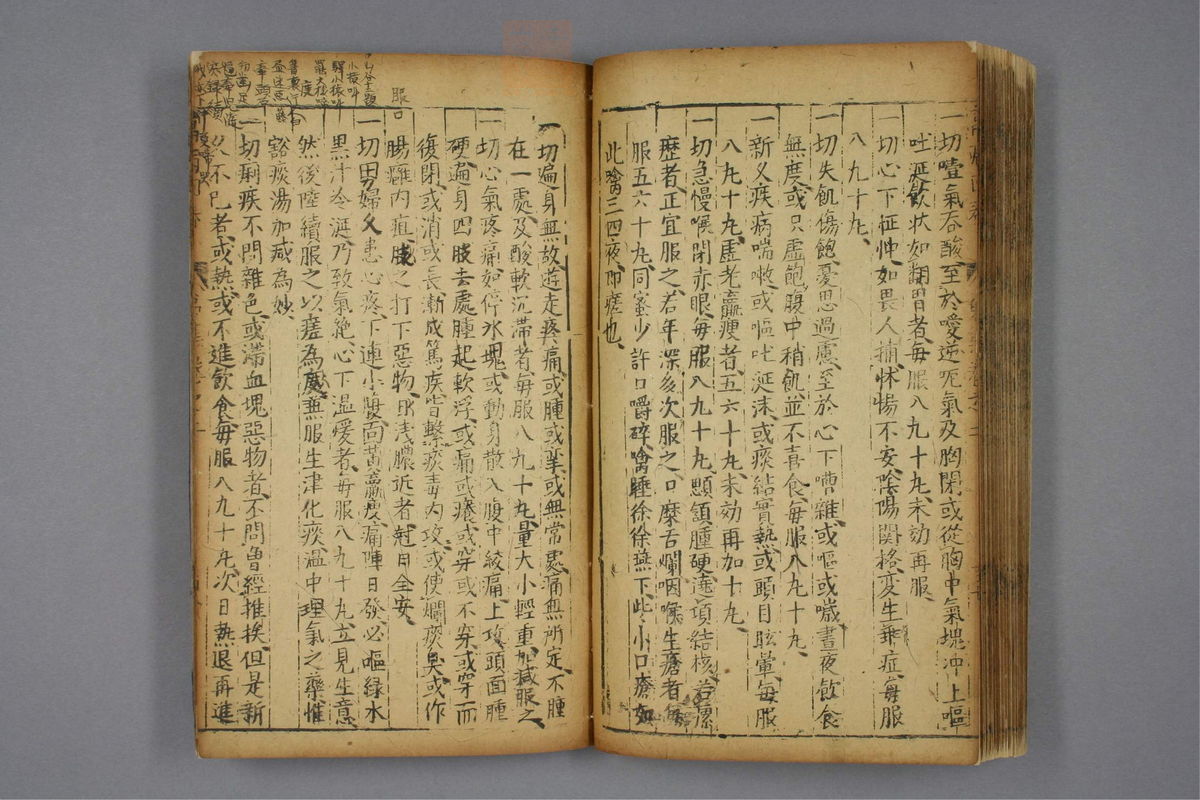 一切噎氣吞酸至於噯逆咒氣及胸閉或從胸中氣塊冲上嘔
吐延飲狀如翻胃者每服八九十丸未効再服
一切心下怔忡如畏人捕怵惕不安陰陽関格変生乖症每服
八九十丸
一切失飢傷飽憂思過慮至於心下嘈雜或嘔或噦晝夜飲食
無度或只虛飽腹中稍飢並不喜食每服八九十丸
一新久疾病喘嗽或嘔吐涎沫或痰結實熱或頭目眩暈每服
八九十丸虛老羸瘦者五六十丸未効再加十丸
一切急慢喉閉赤眼每服八九十丸顋頷腫硬遶項結核若瘰
癧者正宜服之若年深多次服之口糜舌爛咽喉生瘡者每
服五六十丸同蜜少許口嚼碎噙睡徐徐嚥下些小口瘡如
此噙三四夜即瘥也
一切遍身無故遊走疼痛或腫或攣或無常處痛無所定不腫
在一處及酸軟沉滯者每服八九十丸量大小輕重加减服之
一切心氣疼痛如停氷塊或動身散入腹中絞痛上攻頭面腫
硬遍身四肢去處腫起軟浮或痛或癢或穿或不穿或穿而
復閉或消或長漸成篤疾皆繫痰毒内攻或使爛痰臭或作
腸癰内疽服之打下惡物即浅膿近者尅日全安
一切男婦久患心疼下連小腹面黃羸瘦痛陣日發必嘔緑水
黒汁冷涎乃致氣絶心下温爱者每服八九十丸立見生意
然後陸續服之以瘥為度兼服生津化痰温中理氣之藥惟
豁痰湯加减為妙
一切痢疾不問雜色或滞血塊惡物者不問曾經推挨但是新
久不已者或熱或不進飲食每服八九十丸次日熱退再進
服口